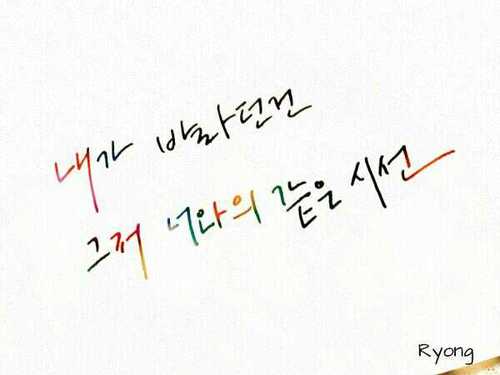 내가 바라던건
그저 너와의 같은 시선
Ryong